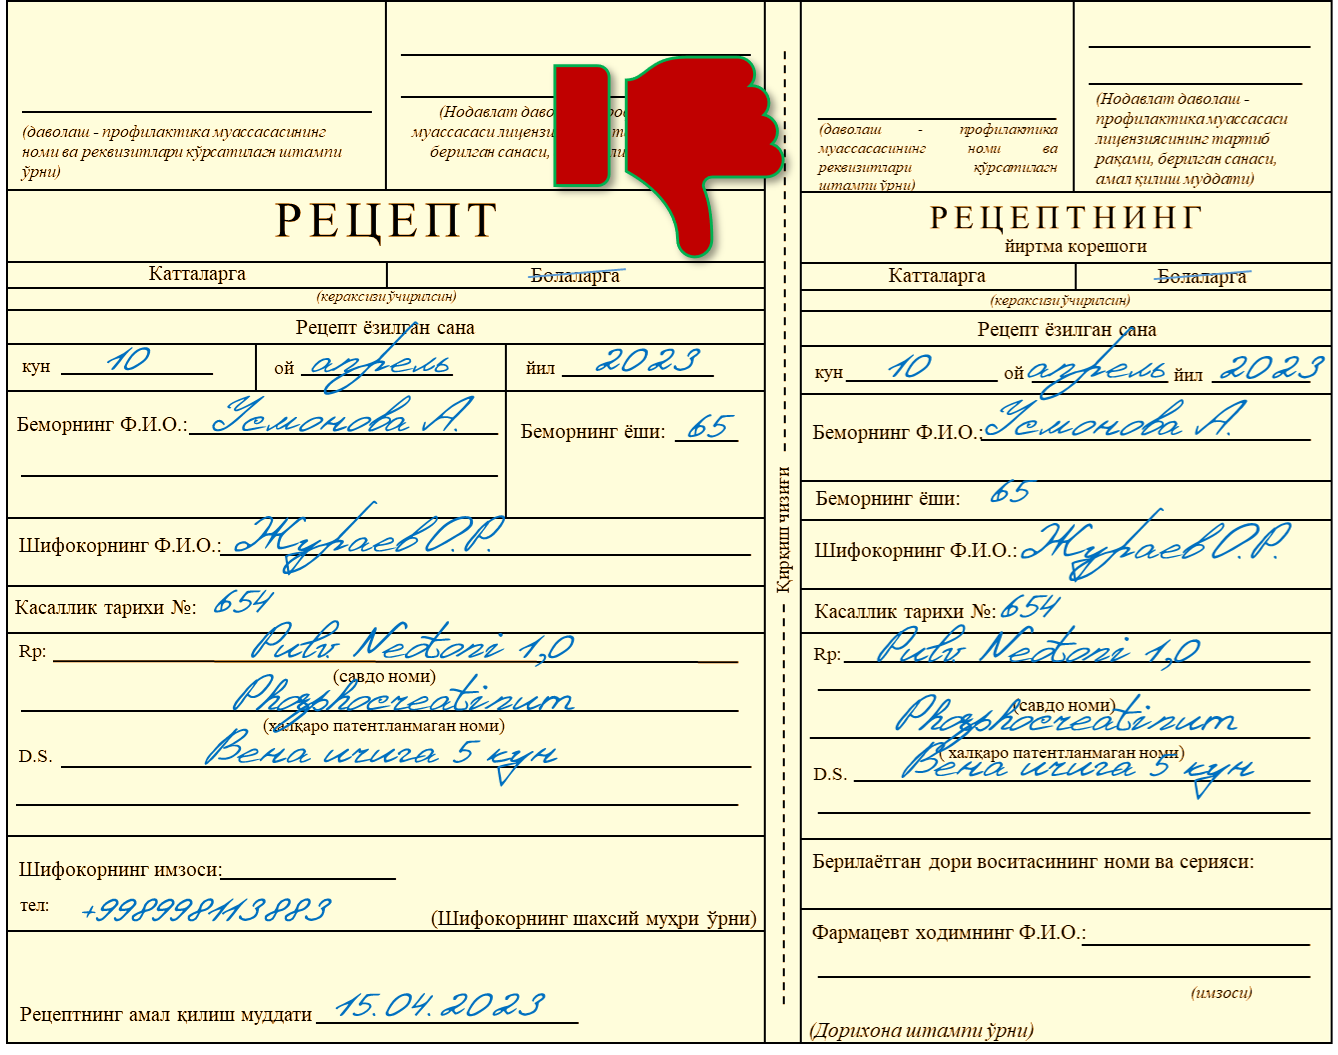 (даволаш - профилактика муассасасининг
номи ва реквизитлари кўрсатилагн штампи
ўрни)
(Нодавлат даво
муассасаси лицензи
берилган санаси,
РЕЦЕПТ
Катталарга Болаларга
(кераксизи ўчирилсин)
Рецепт ёзилган сана
кун 10 ой апрель йил 2023
Беморнинг Ф.И.О.: Усмонова А.
Беморнинг ёши: 65
Шифокорнинг Ф.И.О.: Жураев О.Р.
Касаллик тарихи №: 654
Rp: Pulv. Neotoni 1,0
(савдо номи)
Phosphocreatinum
(халқаро патентланмаган номи)
D.S. Вена ичига 5 кун
Шифокорнинг имзоси:
тел: +998998113883
(Шифокорнинг шахсий муҳри ўрни)
Рецептнинг амал қилиш муддати 15.04.2023
Қирқиш чизиғи
(даволаш - профилактика
муассасасининг номи ва
реквизитлари кўрсатилагн
штампи ўрни)
(Нодавлат даволаш -
профилактика муассасаси
лицензиясининг тартиб
рақами, берилган санаси,
амал қилиш муддати)
РЕЦЕПТНИНГ
йиртма корешоги
Катталарга Болаларга
(кераксизи ўчирилсин)
Рецепт ёзилган сана
кун 10 ой апрель йил 2023
Беморнинг Ф.И.О.: Усмонова А.
Беморнинг ёши: 65
Шифокорнинг Ф.И.О.: Жураев О.Р.
Касаллик тарихи №: 654
Rp: Pulv. Neotoni 1,0
(савдо номи)
Phosphocreatinum
(халқаро патентланмаган номи)
D.S. Вена ичига 5 кун
Берилаётган дори воситасининг номи ва серияси:
Фармацевт ходимнинг Ф.И.О.:
(имзоси)
(Дорихона штампи ўрни)